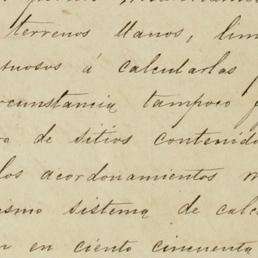 terrenos llanos, lim
tuosos á calcularlas
rcunstancia tampoco f
ro de sitios contenido
los acordonamientos m
esmo sistema de calc
r en ciento cincuenta